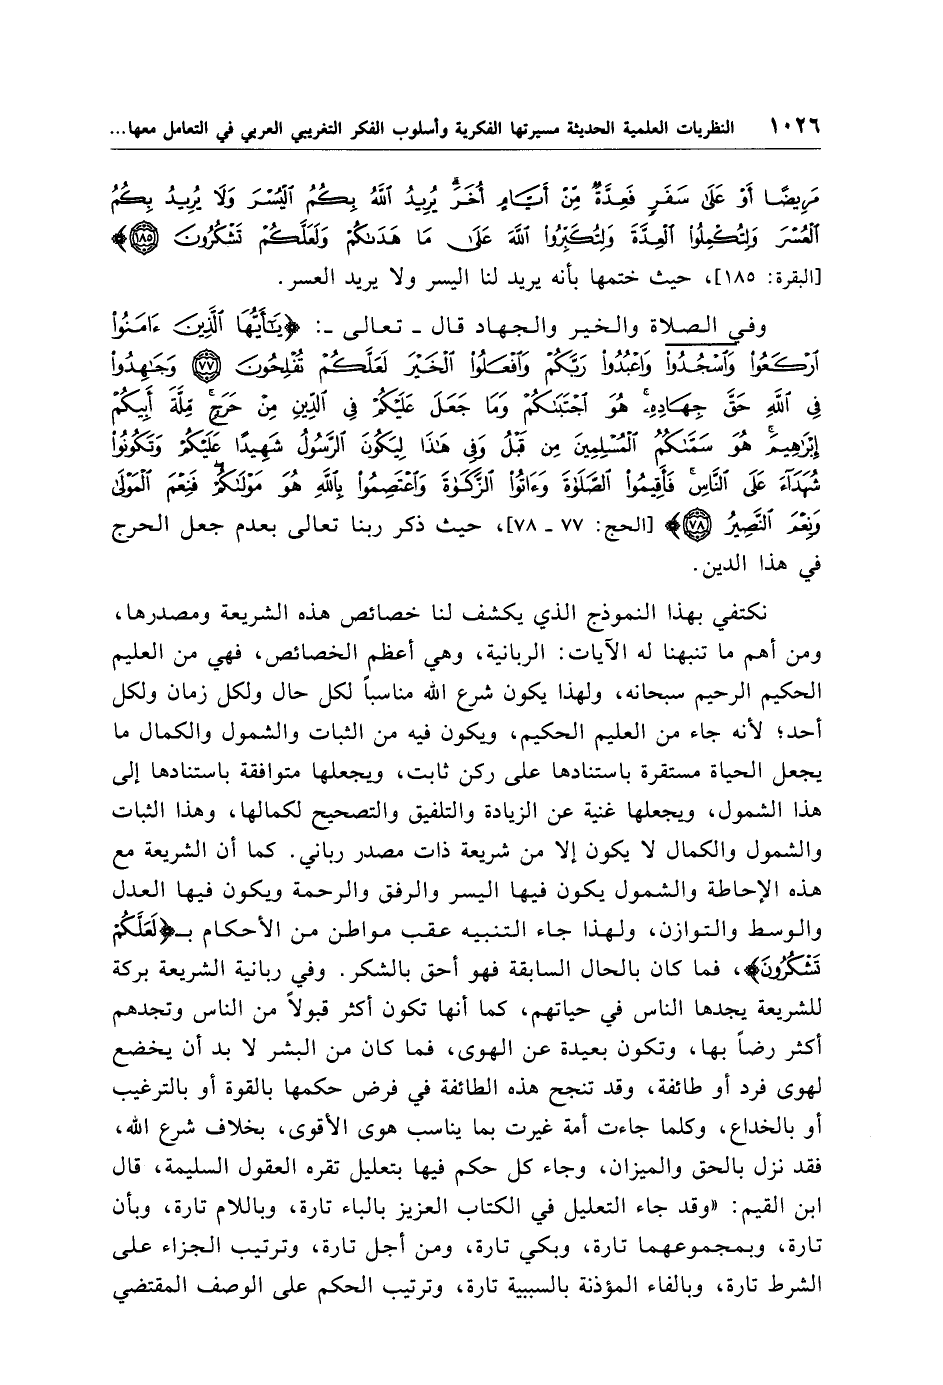 ١٠٢٦ النظريات العلمية الحديثة مسيرتها الفكرية وأسلوب الفكر التغريبي العربي في التعامل معها...
مَرِيضًا أَوْ عَلَىٰ سَفَرٍ فَعِدَّةٌ مِّنْ أَيَّامٍ أُخَرَ ۗ يُرِيدُ ٱللَّهُ بِكُمُ ٱلْيُسْرَ وَلَا يُرِيدُ بِكُمُ
ٱلْعُسْرَ وَلِتُكْمِلُوا۟ ٱلْعِدَّةَ وَلِتُكَبِّرُوا۟ ٱللَّهَ عَلَىٰ مَا هَدَىٰكُمْ وَلَعَلَّكُمْ تَشْكُرُونَ ١٨٥﴾
[البقرة: ١٨٥]، حيث ختمها بأنه يريد لنا اليسر ولا يريد العسر.
وفي الصلاة والخير والجهاد قال ـ تعالى ـ: ﴿يَٰٓأَيُّهَا ٱلَّذِينَ ءَامَنُوا۟
ٱرْكَعُوا۟ وَٱسْجُدُوا۟ وَٱعْبُدُوا۟ رَبَّكُمْ وَٱفْعَلُوا۟ ٱلْخَيْرَ لَعَلَّكُمْ تُفْلِحُونَ ٧٧ وَجَٰهِدُوا۟
فِى ٱللَّهِ حَقَّ جِهَادِهِۦ ۚ هُوَ ٱجْتَبَىٰكُمْ وَمَا جَعَلَ عَلَيْكُمْ فِى ٱلدِّينِ مِنْ حَرَجٍ ۚ مِّلَّةَ أَبِيكُمْ
إِبْرَٰهِيمَ ۚ هُوَ سَمَّىٰكُمُ ٱلْمُسْلِمِينَ مِن قَبْلُ وَفِى هَٰذَا لِيَكُونَ ٱلرَّسُولُ شَهِيدًا عَلَيْكُمْ وَتَكُونُوا۟
شُهَدَآءَ عَلَى ٱلنَّاسِ ۚ فَأَقِيمُوا۟ ٱلصَّلَوٰةَ وَءَاتُوا۟ ٱلزَّكَوٰةَ وَٱعْتَصِمُوا۟ بِٱللَّهِ هُوَ مَوْلَىٰكُمْ ۖ فَنِعْمَ ٱلْمَوْلَىٰ
وَنِعْمَ ٱلنَّصِيرُ ٧٨﴾ [الحج: ٧٧ ـ ٧٨]، حيث ذكر ربنا تعالى بعدم جعل الحرج
في هذا الدين.
نكتفي بهذا النموذج الذي يكشف لنا خصائص هذه الشريعة ومصدرها،
ومن أهم ما تنبهنا له الآيات: الربانية، وهي أعظم الخصائص، فهي من العليم
الحكيم الرحيم سبحانه، ولهذا يكون شرع الله مناسباً لكل حال ولكل زمان ولكل
أحد؛ لأنه جاء من العليم الحكيم، ويكون فيه من الثبات والشمول والكمال ما
يجعل الحياة مستقرة باستنادها على ركن ثابت، ويجعلها متوافقة باستنادها إلى
هذا الشمول، ويجعلها غنية عن الزيادة والتلفيق والتصحيح لكمالها، وهذا الثبات
والشمول والكمال لا يكون إلا من شريعة ذات مصدر رباني. كما أن الشريعة مع
هذه الإحاطة والشمول يكون فيها اليسر والرفق والرحمة ويكون فيها العدل
والوسط والتوازن، ولهذا جاء التنبيه عقب مواطن من الأحكام بـ﴿لَعَلَّكُمْ
تَشْكُرُونَ﴾، فما كان بالحال السابقة فهو أحق بالشكر. وفي ربانية الشريعة بركة
للشريعة يجدها الناس في حياتهم، كما أنها تكون أكثر قبولاً من الناس وتجدهم
أكثر رضاً بها، وتكون بعيدة عن الهوى، فما كان من البشر لا بد أن يخضع
لهوى فرد أو طائفة، وقد تنجح هذه الطائفة في فرض حكمها بالقوة أو بالترغيب
أو بالخداع، وكلما جاءت أمة غيرت بما يناسب هوى الأقوى، بخلاف شرع الله،
فقد نزل بالحق والميزان، وجاء كل حكم فيها بتعليل تقره العقول السليمة، قال
ابن القيم: «وقد جاء التعليل في الكتاب العزيز بالباء تارة، وباللام تارة، وبأن
تارة، وبمجموعهما تارة، وبكي تارة، ومن أجل تارة، وترتيب الجزاء على
الشرط تارة، وبالفاء المؤذنة بالسببية تارة، وترتيب الحكم على الوصف المقتضي